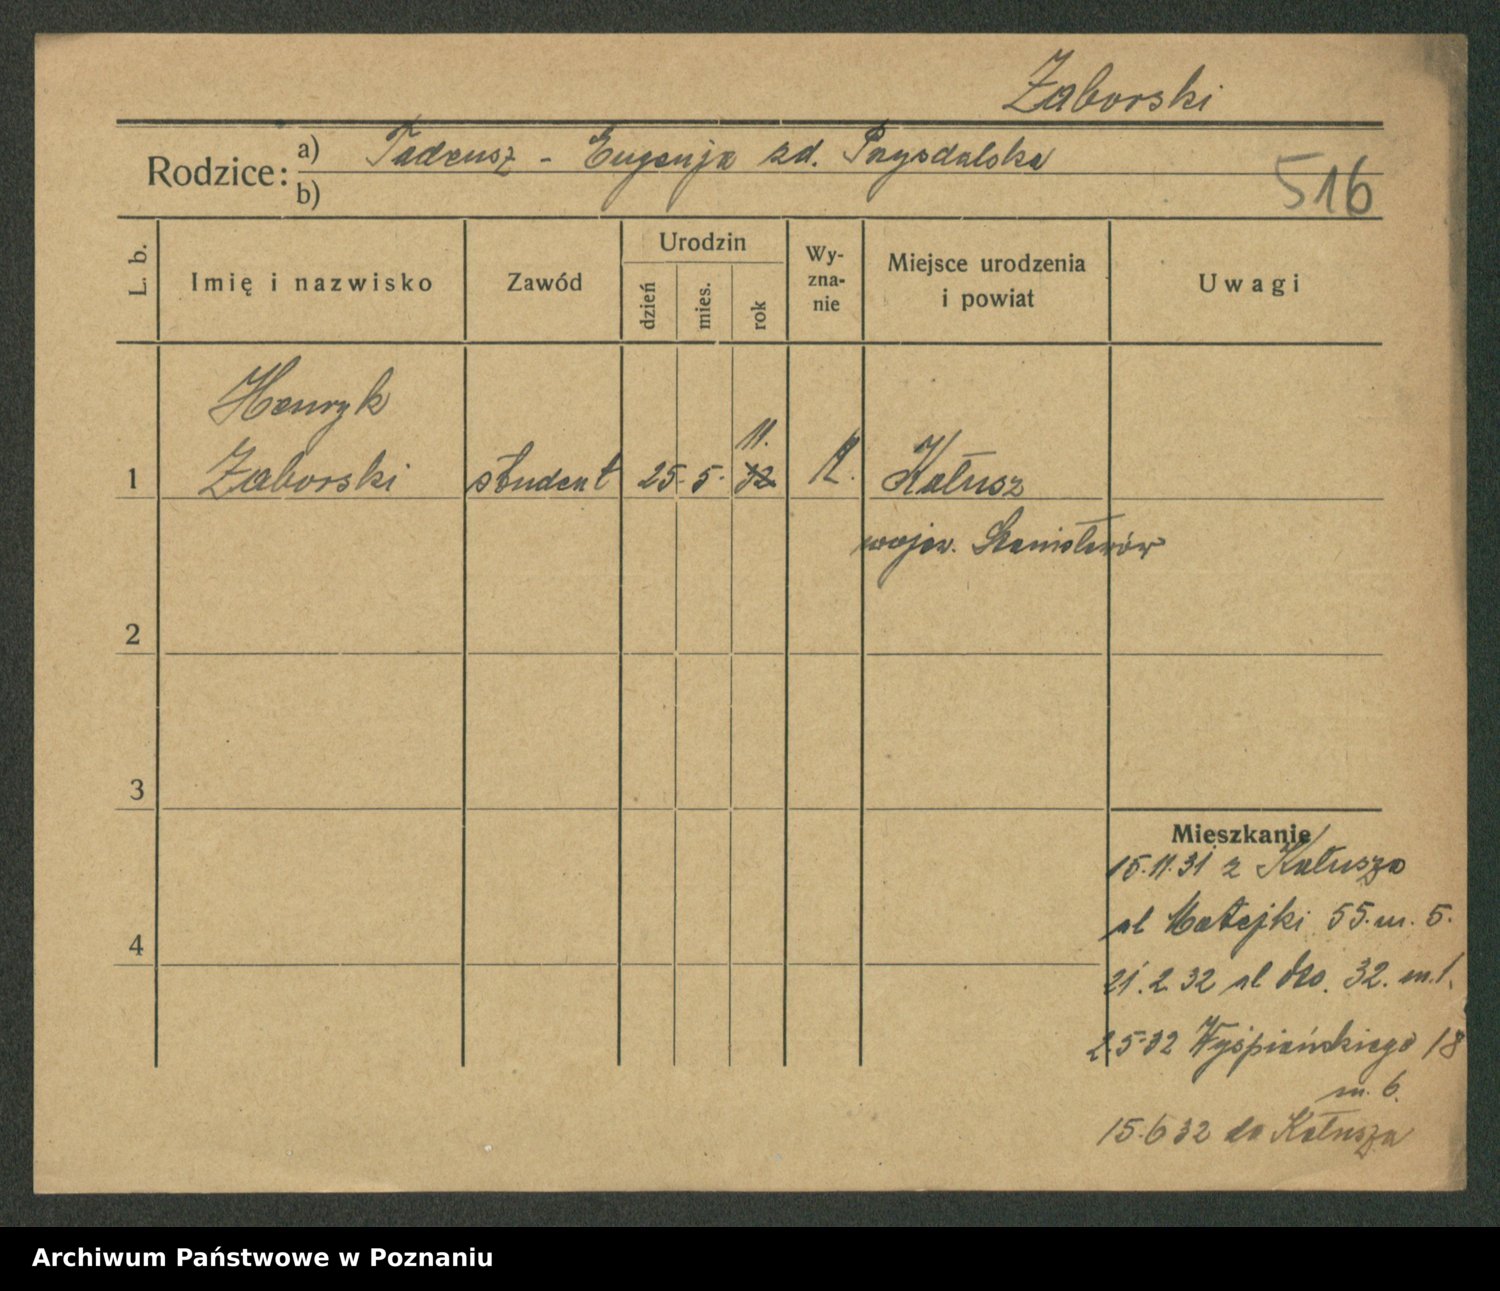 Zaborski
Rodzice: a) Tadeusz - Eugenja zd. Przysdalska
b)
516
L. b.
Imię i nazwisko
Zawód
Urodzin
dzień
mies.
rok
Wy-
zna-
nie
Miejsce urodzenia
i powiat
Uwagi
Henryk
11.
1 Zaborski student 25. 5. 32 R. Kałusz
wojew. Stanisławów
2
3
Mieszkanie
15.11.31 z Kałusza
ul Matejki 55. m. 5.
4
21.2.32 ul dto. 32. m.1.
2.5.32 Wyśpiańskiego 18
m. 6.
15.6 32 do Kałusza
Archiwum Państwowe w Poznaniu